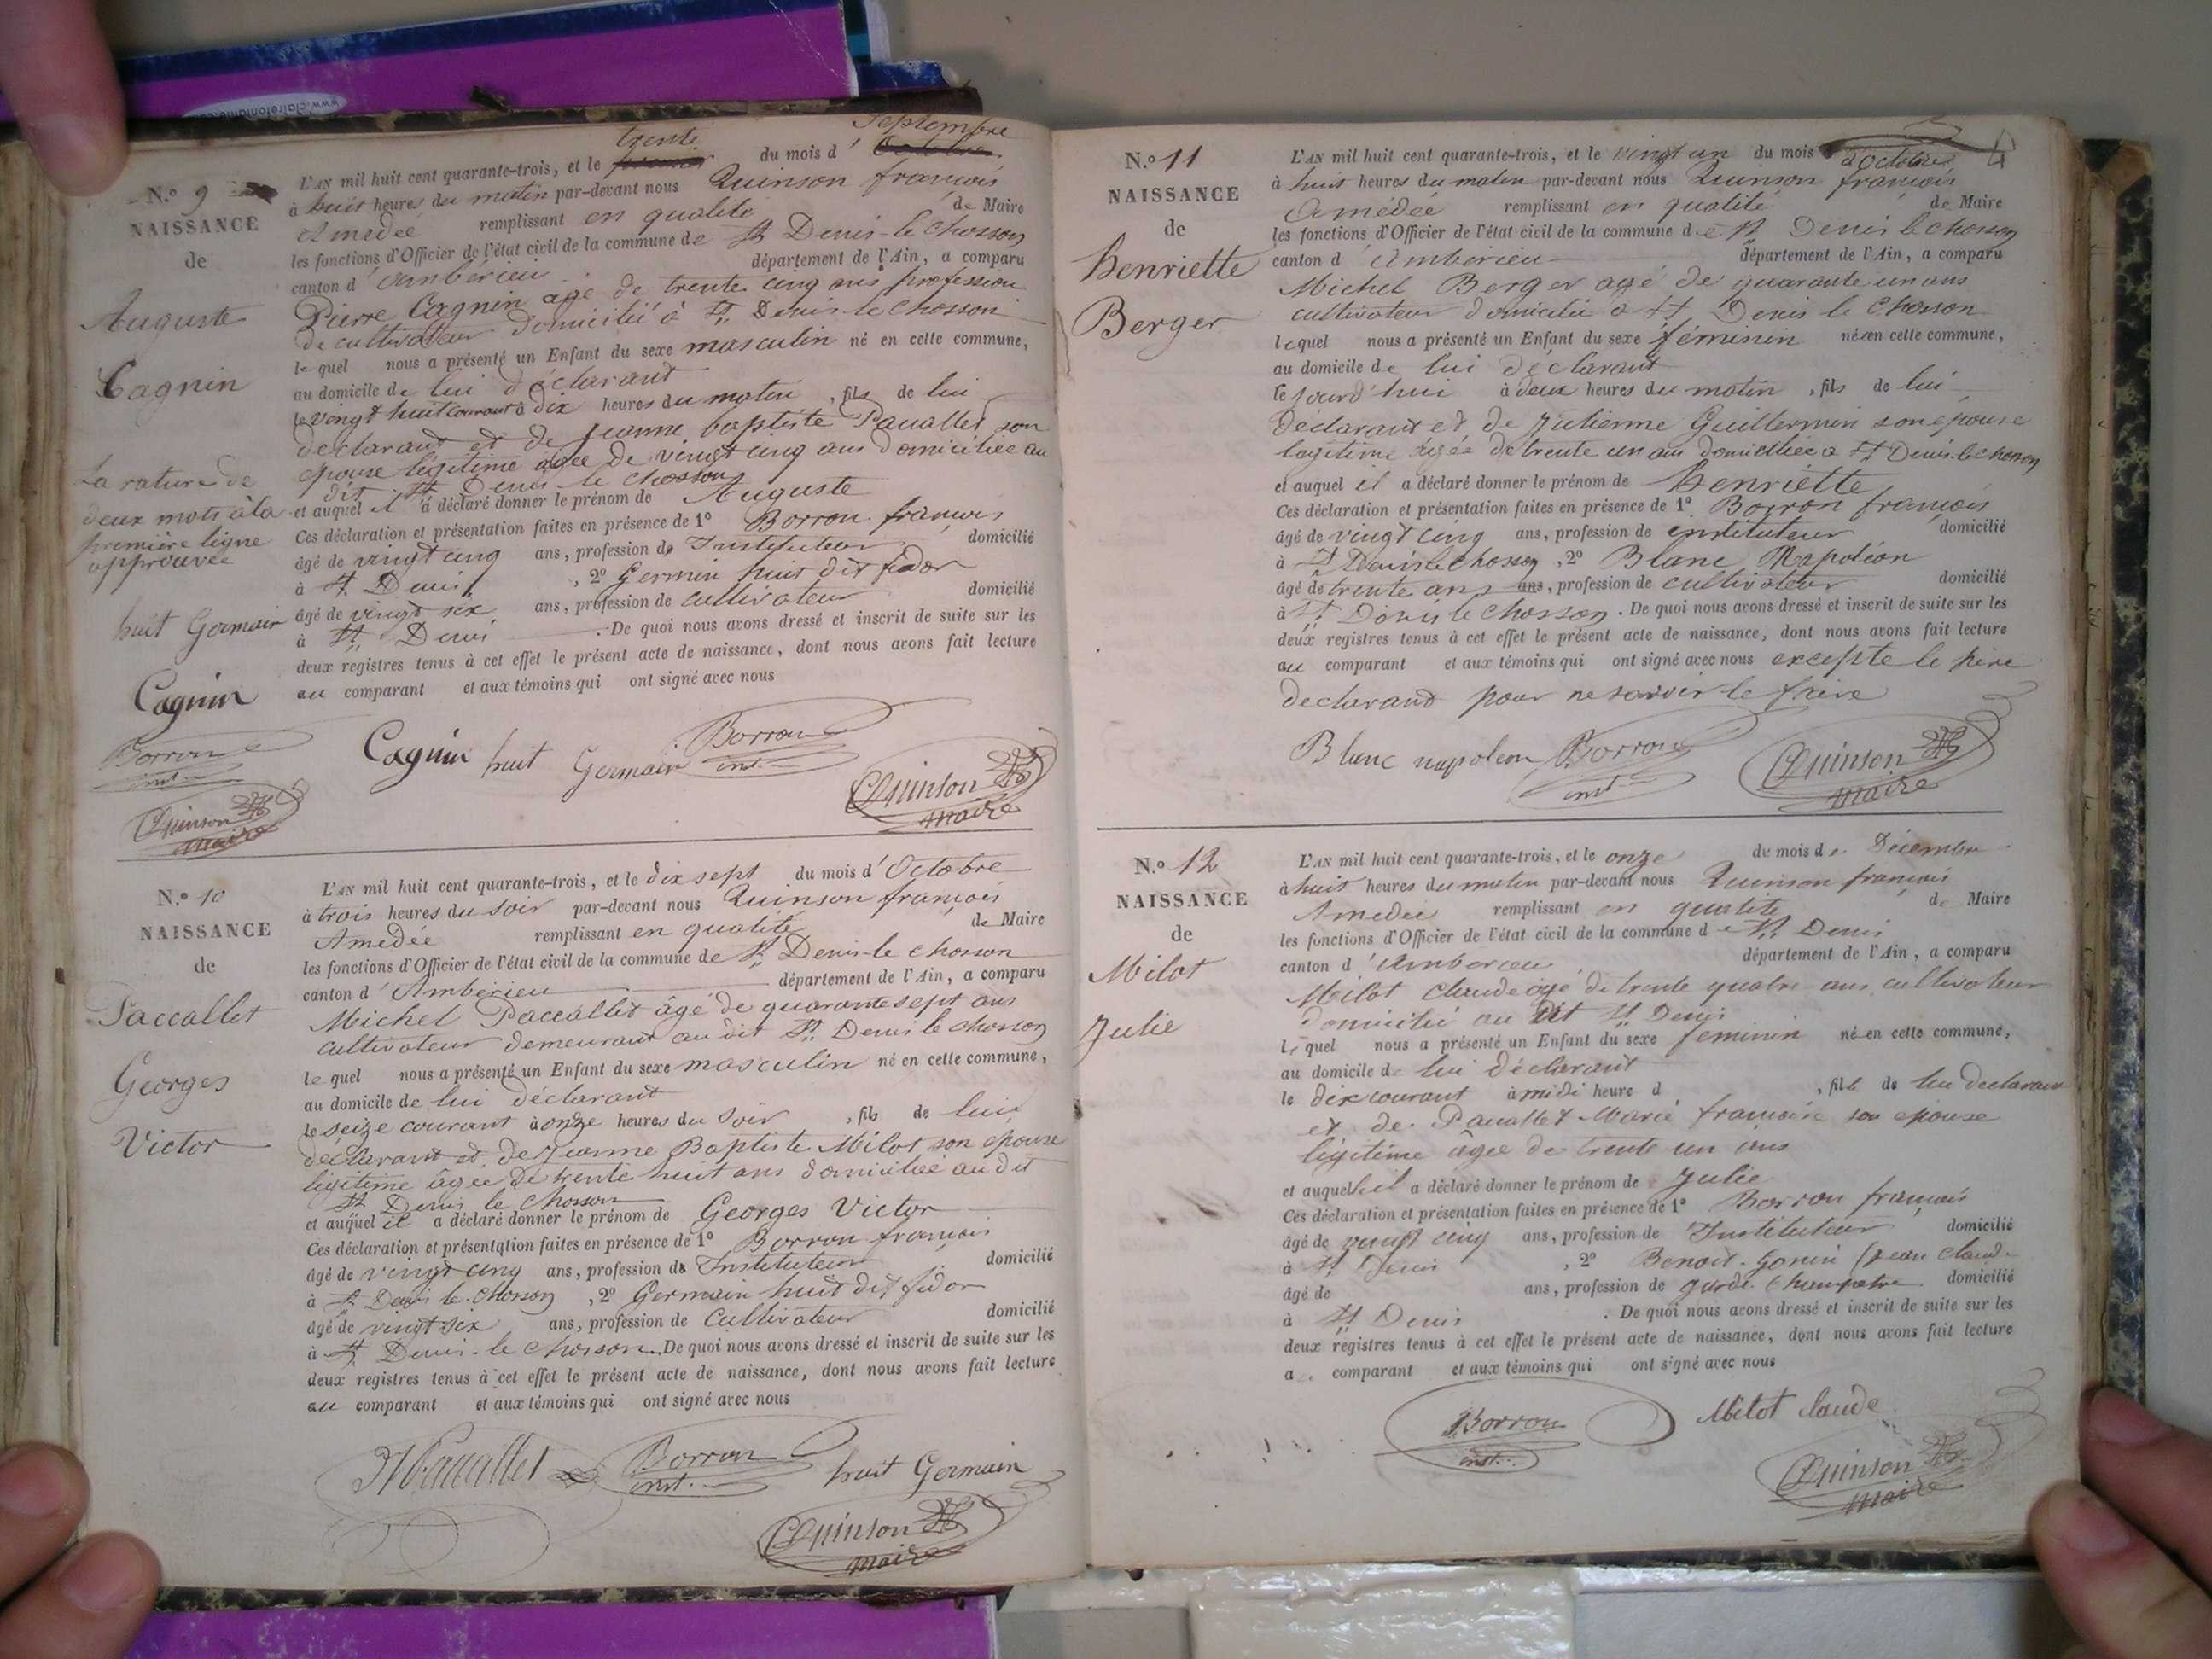 www.clairefontaine.c
N.º 9
NAISSANCE
de
Auguste
Cagnin
La rature de
deux mots à la
première ligne
approuvée
huit Germain
Cagnin
Borron
inst.
Quinson
maire
trente Septembre
L'AN mil huit cent quarante-trois, et le premier du mois d' Octobre
à huit heures du matin par-devant nous Quinson françois
Amedée remplissant en qualité de Maire
les fonctions d'Officier de l'état civil de la commune de St Denis-le Chosson
canton d' Ambérieu département de l'Ain, a comparu
Pierre Cagnin agé de trente cinq ans profession
de cultivateur domicilié à St Denis-le Chosson
le quel nous a présenté un Enfant du sexe masculin né en cette commune,
au domicile de lui déclarant
le vingt huit courant à dix heures du matin, fils de lui
declarant et de Jeanne baptiste Pacallet son
epouse légitime âgée de vingt cinq ans domiciliée au
dit St Denis le Chosson
et auquel il a déclaré donner le prénom de Auguste
Ces déclaration et présentation faites en présence de 1º Borron françois
âgé de vingt cinq ans, profession de Instituteur domicilié
à St Denis, 2º Germain huit dit fidor
âgé de vingt six ans, profession de cultivateur domicilié
à St Denis. De quoi nous avons dressé et inscrit de suite sur les
deux registres tenus à cet effet le présent acte de naissance, dont nous avons fait lecture
au comparant et aux témoins qui ont signé avec nous
Cagnin huit Germain Borron
inst.
Quinson
maire
N.º 10
NAISSANCE
de
Paccallet
Georges
Victor
L'AN mil huit cent quarante-trois, et le dix sept du mois d' Octobre
à trois heures du soir par-devant nous Quinson françois
Amedée remplissant en qualité de Maire
les fonctions d'Officier de l'état civil de la commune de St Denis-le chosson
canton d' Ambérieu département de l'Ain, a comparu
Michel Paccallet âgé de quarante sept ans
cultivateur demeurant au dit St Denis le chosson
le quel nous a présenté un Enfant du sexe masculin né en cette commune,
au domicile de lui déclarant
le seize courant à onze heures du soir, fils de lui
déclarant et de Jeanne Baptiste Milot son epouse
légitime âgée de trente huit ans domiciliée au dit
St Denis le Chosson
et auquel il a déclaré donner le prénom de Georges Victor
Ces déclaration et présentation faites en présence de 1º Borron françois
âgé de vingt cinq ans, profession de Instituteur domicilié
à St Denis le Chosson, 2º Germain huit dit fidor
âgé de vingt-six ans, profession de Cultivateur domicilié
à St Denis-le Chosson. De quoi nous avons dressé et inscrit de suite sur les
deux registres tenus à cet effet le présent acte de naissance, dont nous avons fait lecture
au comparant et aux témoins qui ont signé avec nous
Borron huit Germain
inst.
Quinson
maire
4
N.º 11
NAISSANCE
de
henriette
Berger
L'AN mil huit cent quarante-trois, et le vingt un du mois d'Octobre
à huit heures du matin par-devant nous Quinson françois
Amédée remplissant en qualité de Maire
les fonctions d'Officier de l'état civil de la commune de St Denis le chosson
canton d' Ambérieu département de l'Ain, a comparu
Michel Berger agé de quarante un ans
cultivateur domicilié à St Denis le Chosson
lequel nous a présenté un Enfant du sexe féminin né en cette commune,
au domicile de lui déclarant
le jourd'hui à deux heures du matin, fils de lui
déclarant et de Julienne Guillermin son épouse
légitime âgée de trente un ans domiciliée a St Denis le chosson
et auquel il a déclaré donner le prénom de henriette
Ces déclaration et présentation faites en présence de 1º Borron françois
âgé de vingt cinq ans, profession de instituteur domicilié
à St Denis le Chosson, 2º Blanc Napoléon
âgé de trente ans ans, profession de cultivateur domicilié
à St Denis le Chosson. De quoi nous avons dressé et inscrit de suite sur les
deux registres tenus à cet effet le présent acte de naissance, dont nous avons fait lecture
au comparant et aux témoins qui ont signé avec nous excepte le père
declarant pour ne savoir le faire
Blanc napoleon Borron
inst.
Quinson
maire
N.º 12
NAISSANCE
de
Milot
Julie
L'AN mil huit cent quarante-trois, et le onze du mois de Décembre
à huit heures du matin par-devant nous Quinson françois
Amedée remplissant en qualité de Maire
les fonctions d'Officier de l'état civil de la commune de St Denis
canton d' Amberieu département de l'Ain, a comparu
Milot Claude agé de trente quatre ans cultivateur
domicilié au dit St Denis
lequel nous a présenté un Enfant du sexe feminin né en cette commune,
au domicile de lui déclarant
le dix courant à midi heure d, fils de lui declarant
et de Pacallet Marie françoise son epouse
légitime âgée de trente un ans
et auquel il a déclaré donner le prénom de Julie
Ces déclaration et présentation faites en présence de 1º Borron françois
âgé de vingt cinq ans, profession de Instituteur domicilié
à St Denis, 2º Benoit-Gonin (Jean Claude
âgé de ans, profession de garde champetre domicilié
à St Denis. De quoi nous avons dressé et inscrit de suite sur les
deux registres tenus à cet effet le présent acte de naissance, dont nous avons fait lecture
a comparant et aux témoins qui ont signé avec nous
Borron Milot Claude
inst.
Quinson
maire